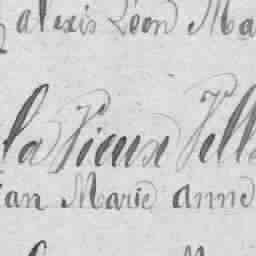 alexis Léon Ma
la Vieux Vill
an Marie anne